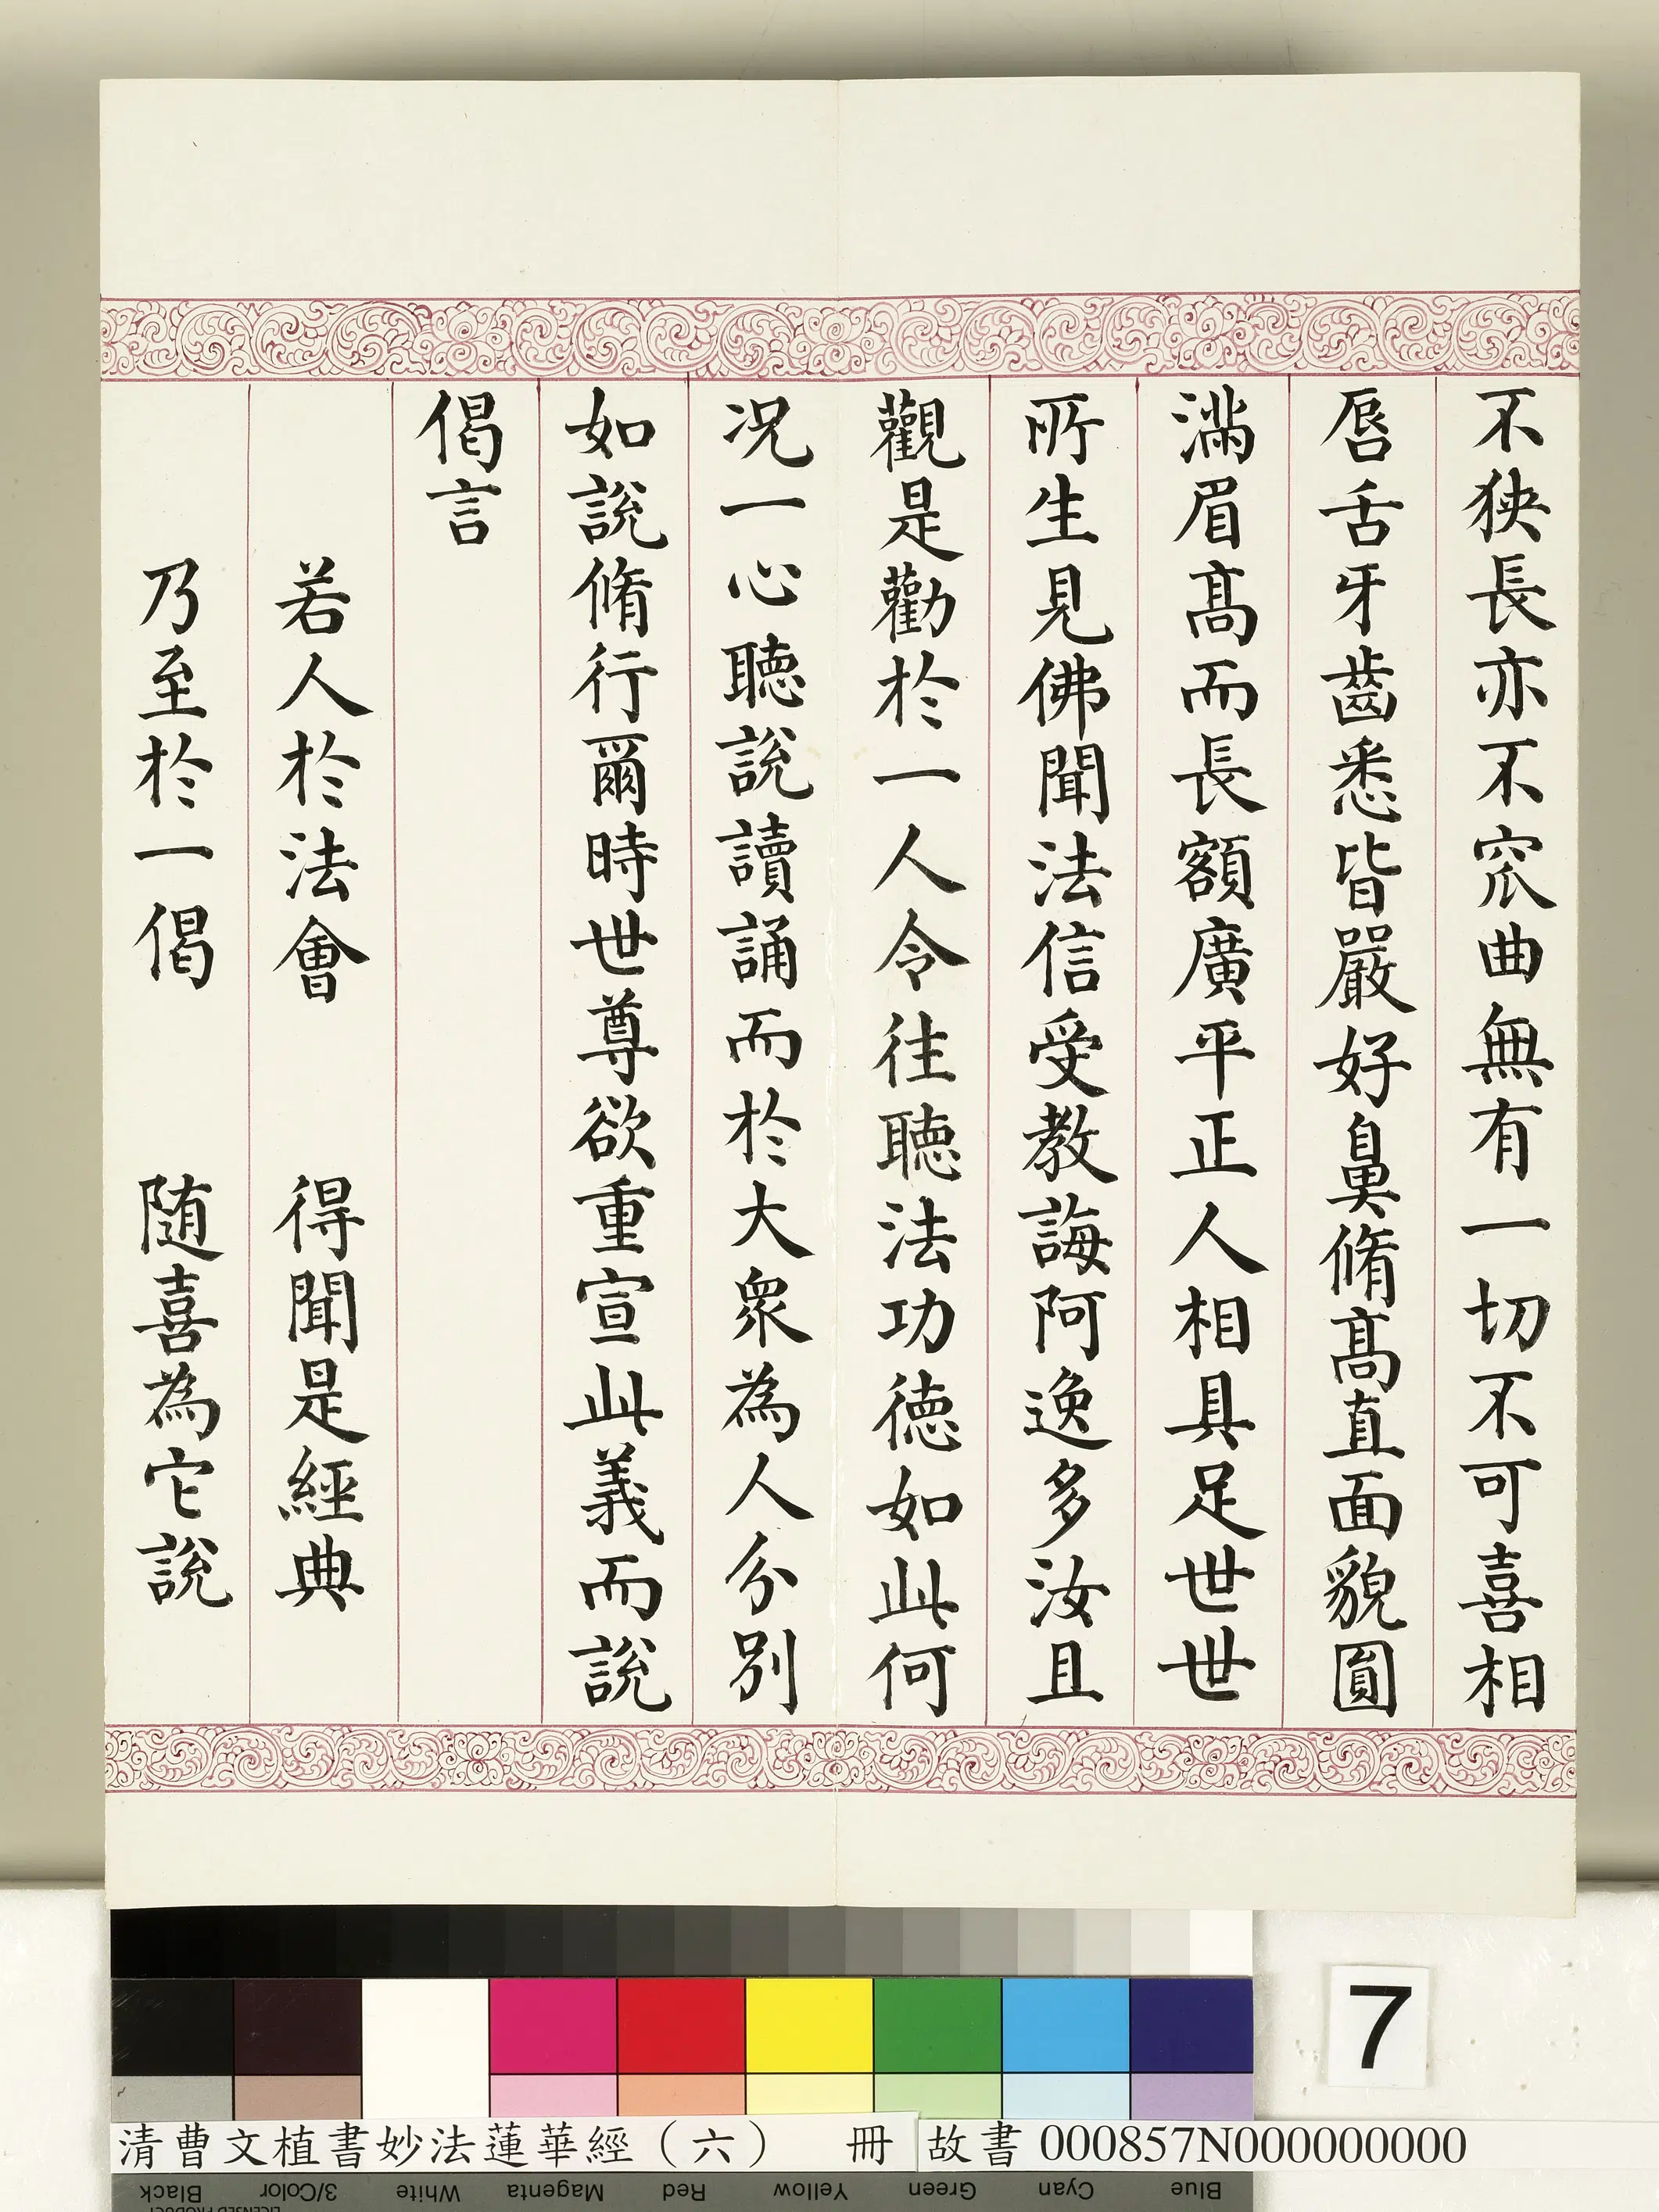 不狹長亦不窊曲無有一切不可喜相
唇舌牙齒悉皆嚴好鼻脩髙直面貌圓
滿眉髙而長額廣平正人相具足世世
所生見佛聞法信受教誨阿逸多汝且
觀是勸於一人令往聽法功德如此何
况一心聽說讀誦而於大衆為人分別
如說脩行爾時世尊欲重宣此義而說
偈言
若人於法會 得聞是經典
乃至於一偈 随喜為它說
7
清曹文植書妙法蓮華經（六） 冊 故書 000857N000000000
Black 3/Color White Magenta Red Yellow Green Cyan Blue